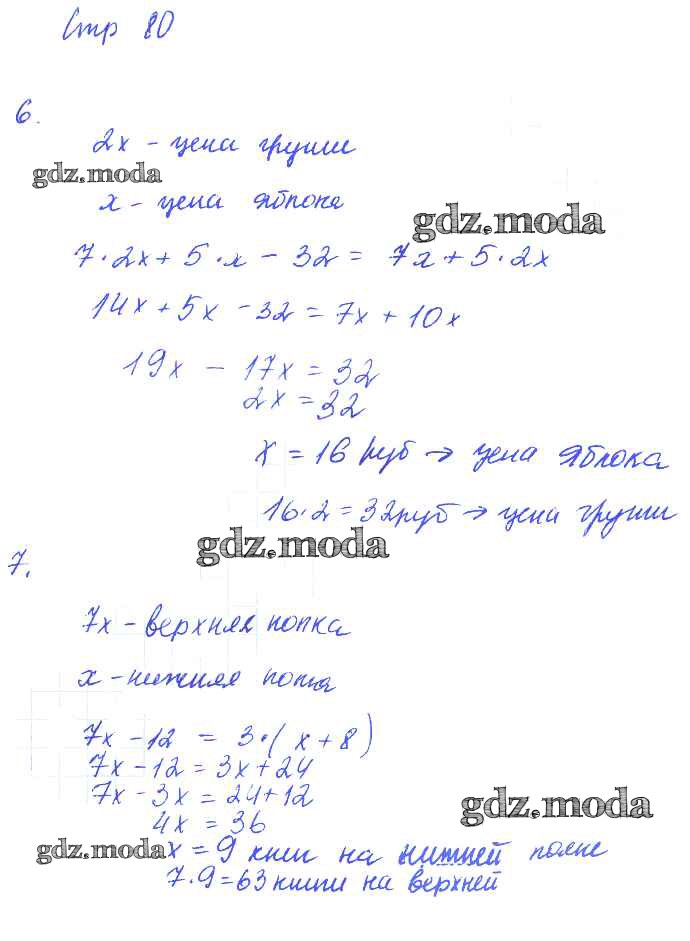 Стр 80
6.
2x - цена груши
gdz.moda
x - цена яблока
gdz.moda
7·2x + 5·x - 32 = 7x + 5·2x
14x + 5x - 32 = 7x + 10x
19x - 17x = 32
2x = 32
x = 16 руб → цена яблока
16·2 = 32 руб → цена груши
gdz.moda
7.
7x - верхняя полка
x - нижняя полка
7x - 12 = 3·(x + 8)
7x - 12 = 3x + 24
7x - 3x = 24 + 12
gdz.moda
4x = 36
gdz.moda
x = 9 книг на нижней полке
7·9 = 63 книги на верхней